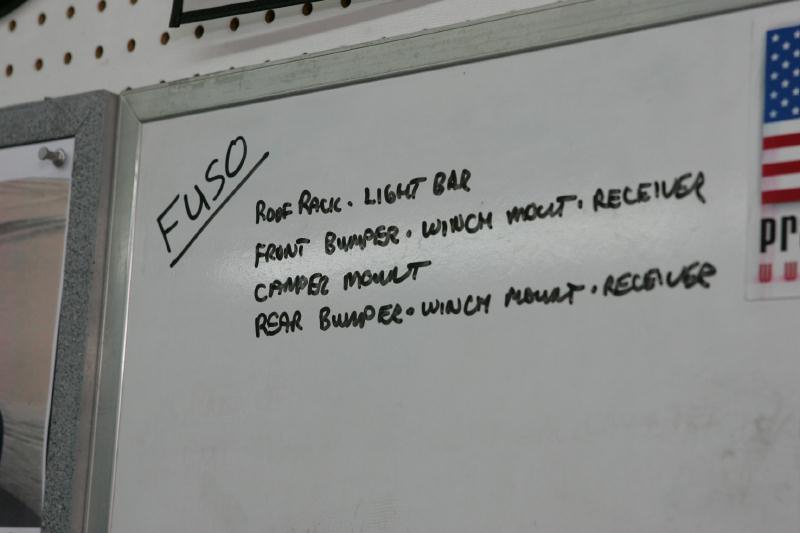 FUSO
ROOF RACK · LIGHT BAR
FRONT BUMPER · WINCH MOUT · RECEIVER
CAMPER MOUNT
REAR BUMPER · WINCH MOUNT · RECEIVER
pr
ww